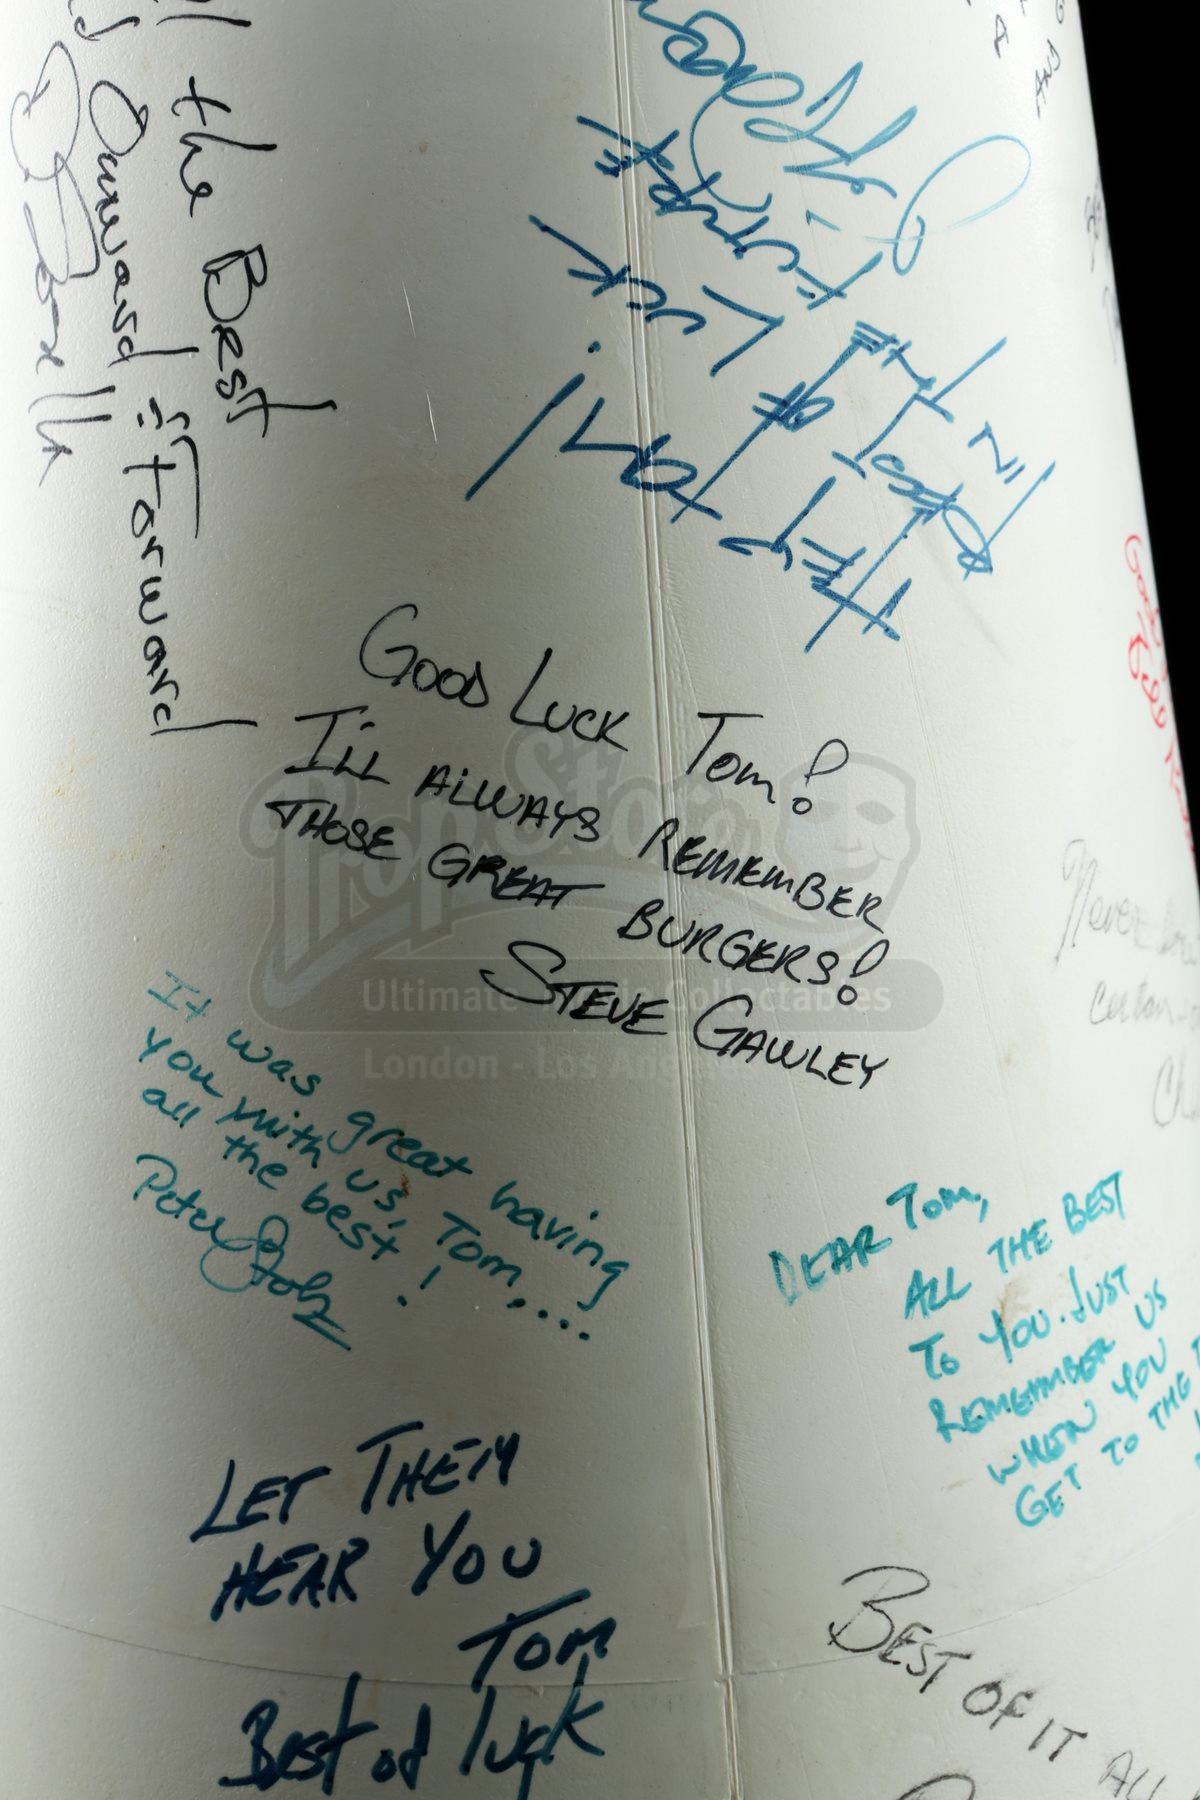 the Best
Onward & Forward
Hey Tom!
Best of Luck
in the
future
Good Luck Tom!
I'll always remember
those great burgers!
Steve Gawley
Prop Store
Ultimate Movie Collectables
London - Los Angeles
It was great having
you with us, Tom....
all the best!
Peter
Dear Tom,
All the best
to you. Just
remember us
when you
get to the
Let them
hear you
Tom
Best of luck
Best of it all